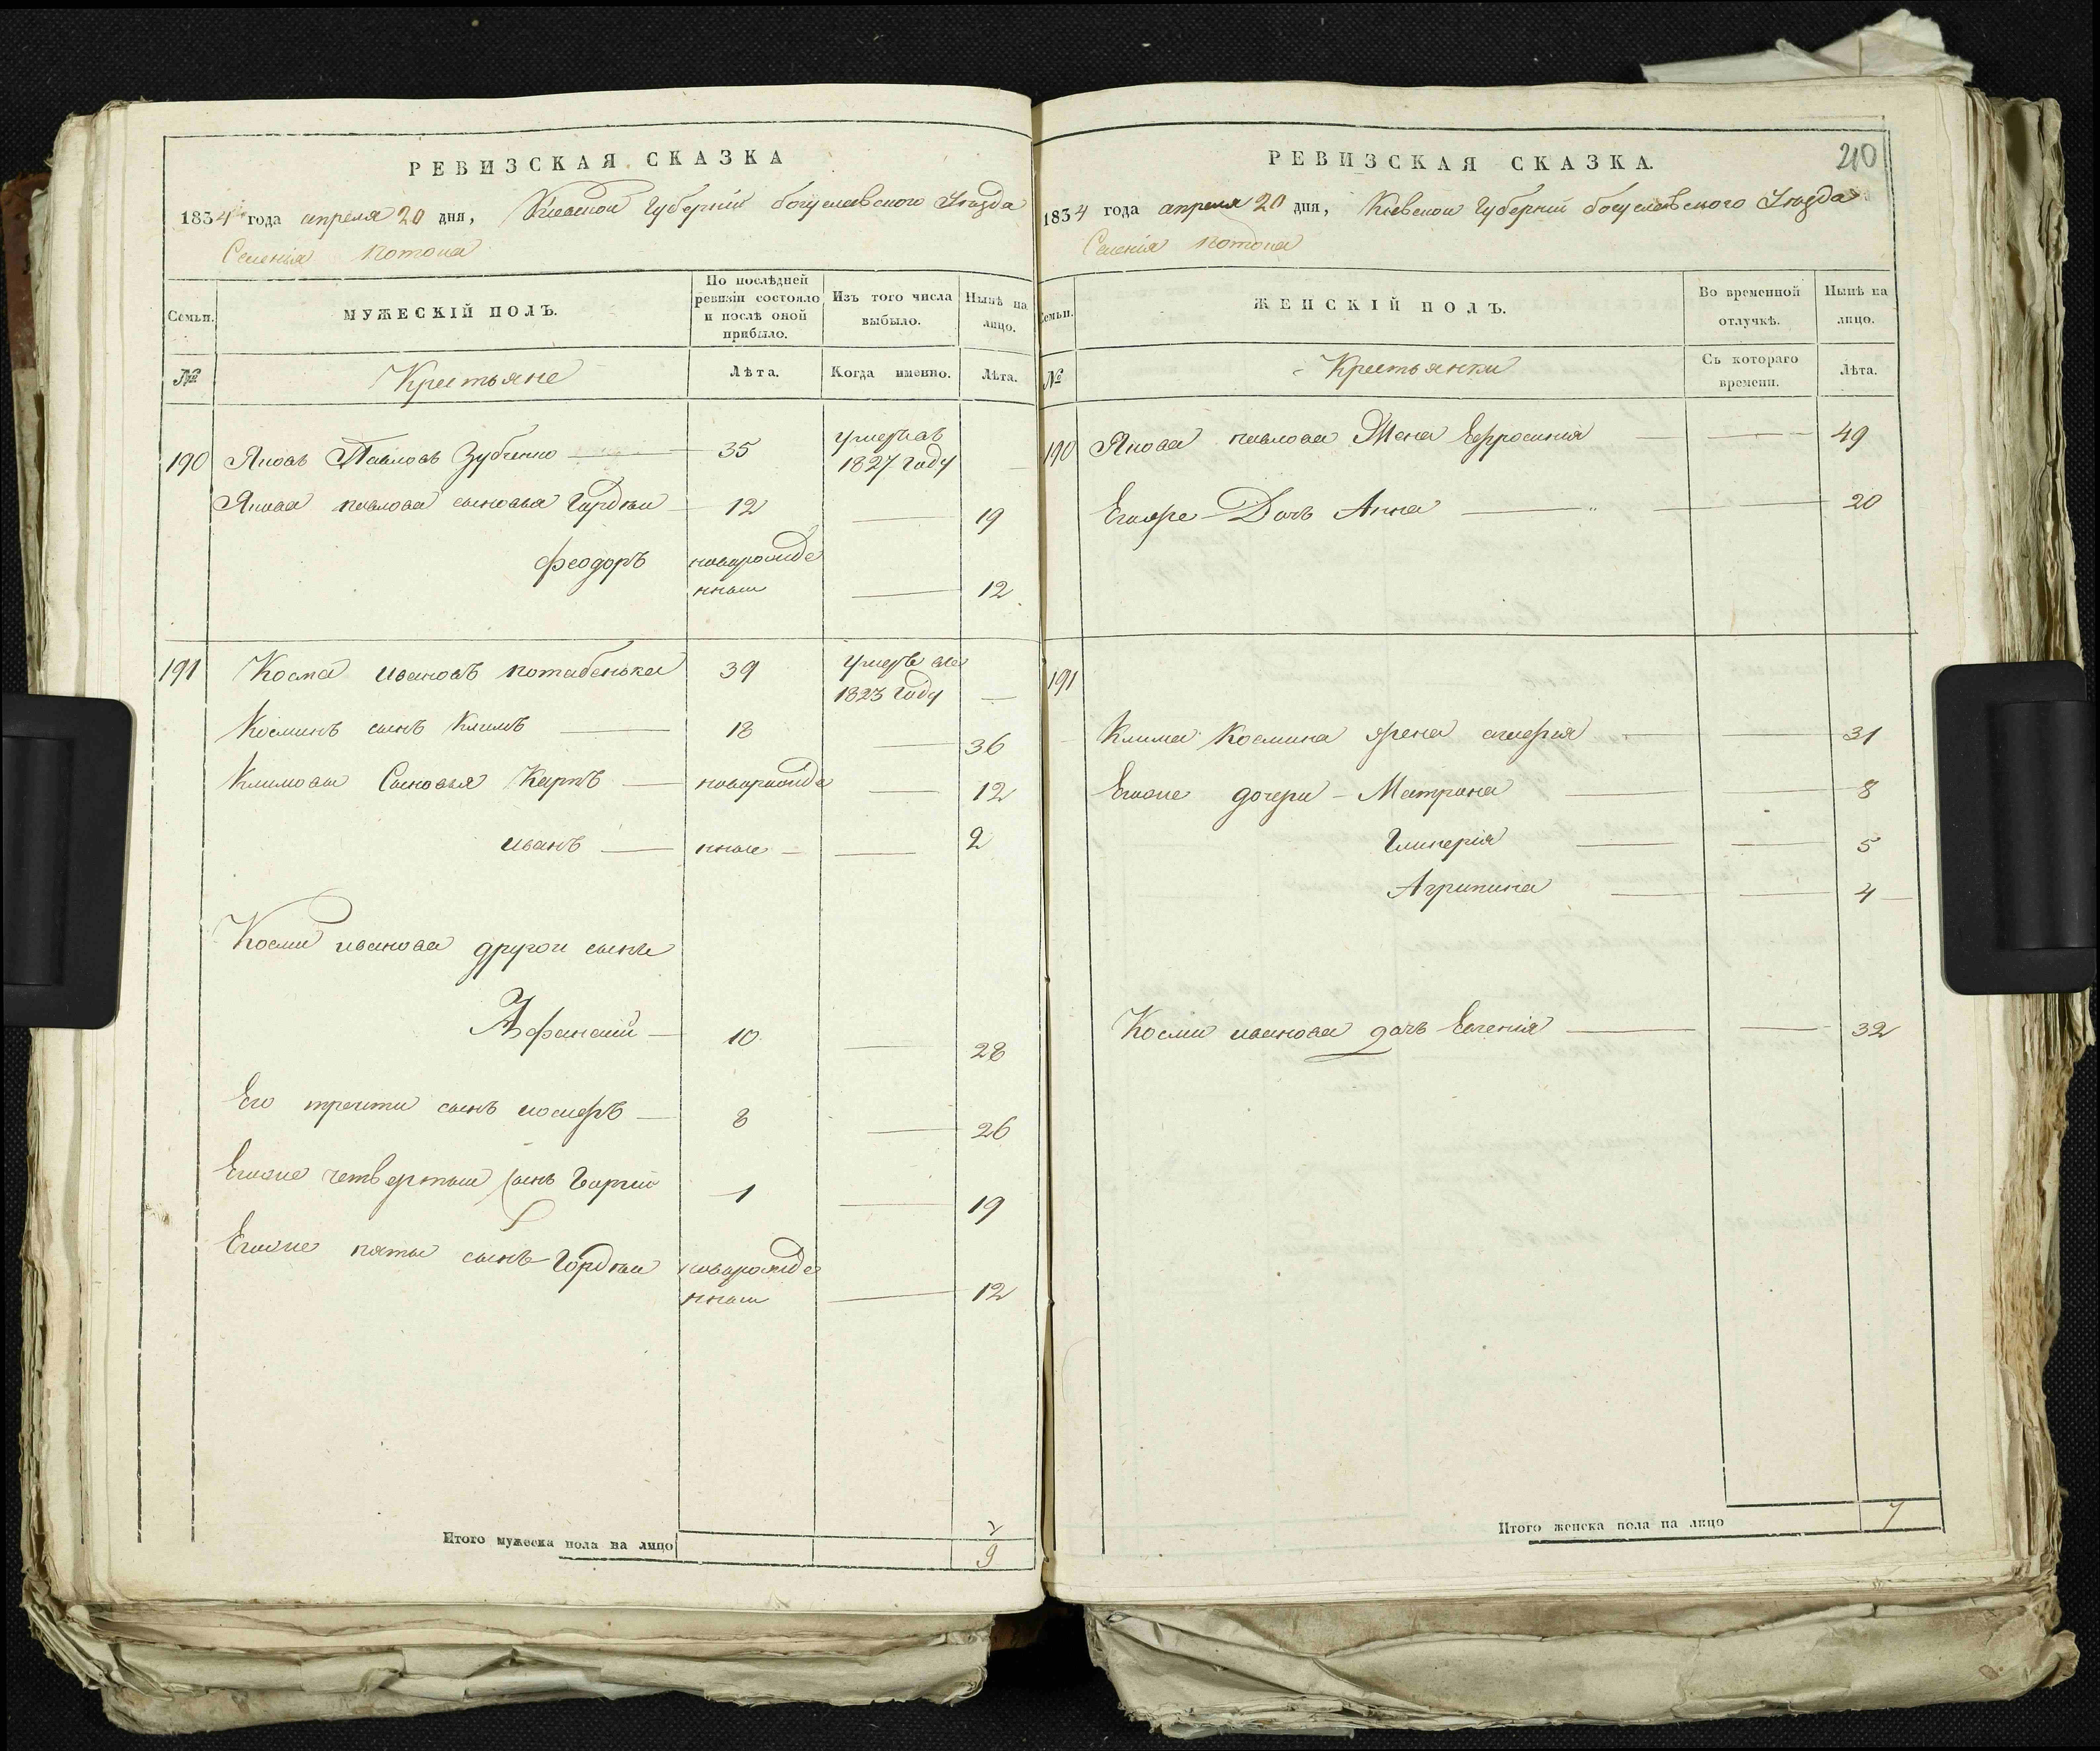 РЕВИЗСКАЯ СКАЗКА
1834 года апреля 20 дня, Кіевской Губерніи богуславского Уѣзда
Селенія Потока
Семьи.
МУЖЕСКІЙ ПОЛЪ.
По послѣдней ревизіи состояло и послѣ оной прибыло.
Изъ того числа выбыло.
Нынѣ на лицо.
№
Крестьяне
Лѣта.
Когда именно.
Лѣта.
190 Яковъ Павловъ Зубченко — 35 умеръ въ
1827 году —
Якова павлова сыновья Гордѣи — 12 — 19
Феодоръ новорожде
нныи — 12
191 Косма ивановъ потабенька 39 умеръ въ
1823 году —
Косминъ сынъ Климъ — 18 — 36
Климовы Сыновья Карпъ — новорожде — 12
иванъ — нные — — 2
Косми иванова другои сынъ
Афанасий — 10 — 28
Его трети сынъ иосифъ — 8 — 26
Егоже четвертыи сынъ Георгий 1 — 19
Егоже пяты сынъ Гордѣи новорожде
нныи — 12
Итого мужеска пола на лицо 9
РЕВИЗСКАЯ СКАЗКА.
210
1834 года апреля 20 дня, Кіевской Губерніи богуславского Уѣзда
Селенія Потока
Семьи.
ЖЕНСКІЙ ПОЛЪ.
Во временной отлучкѣ.
Нынѣ на лицо.
№
Крестьянки
Съ котораго времени.
Лѣта.
190 Якова павлова Жена Ефросиния — — 49
Егоже — Дочь Анна — — 20
191
Клима Космина жена — — 31
Егоже дочери — Матрона — — 8
Гликерія — — 5
Агрипина — — 4
Косми иванова дочь Евгения — — 32
Итого женска пола на лицо 7